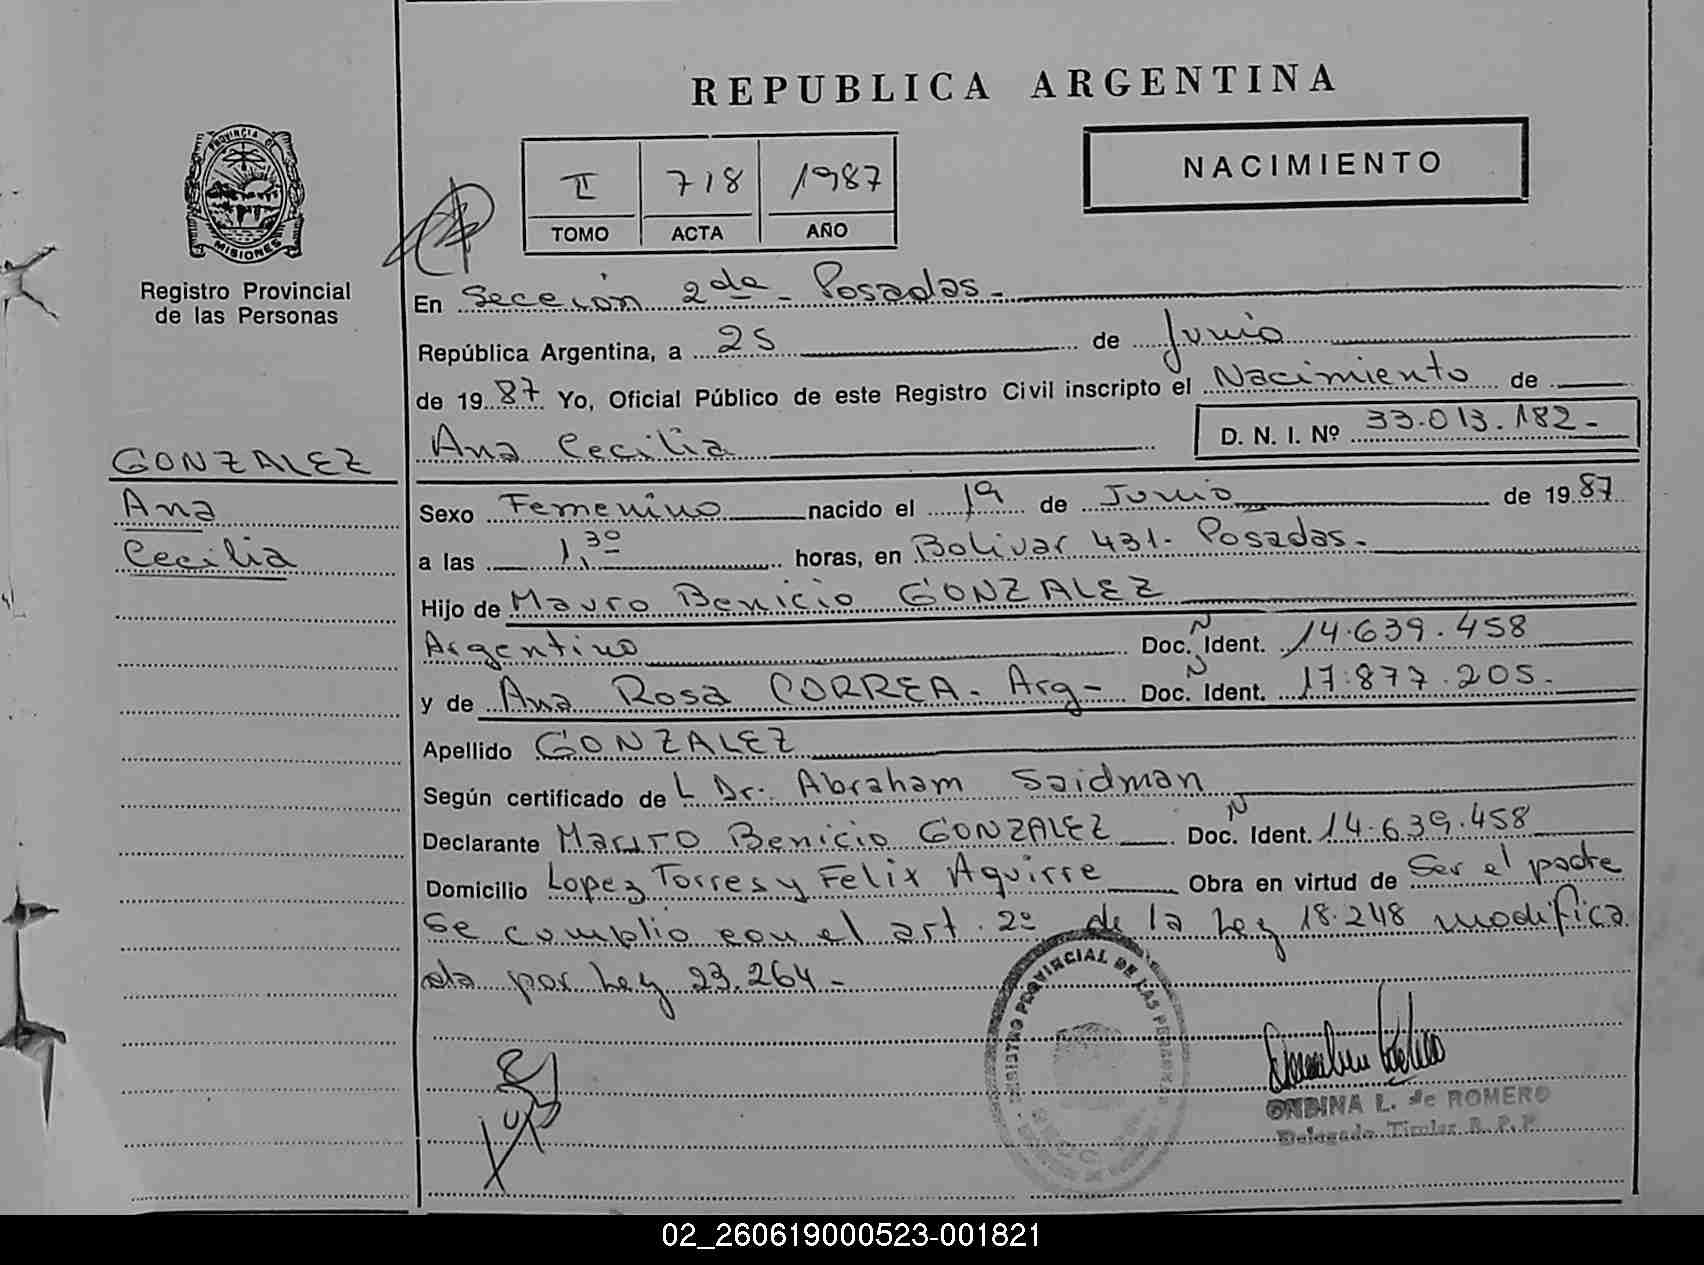 REPUBLICA ARGENTINA
PROVINCIA DE
MISIONES
Registro Provincial
de las Personas
II 718 1987
TOMO ACTA AÑO
NACIMIENTO
En Sección 2da - Posadas -
República Argentina, a 25 de Junio
de 1987 Yo, Oficial Público de este Registro Civil inscripto el Nacimiento de
Ana Cecilia D. N. I. Nº 33.013.182-
GONZALEZ
Ana
Cecilia
Sexo Femenino nacido el 19 de Junio de 1987
a las 1,30 horas, en Bolivar 431- Posadas-
Hijo de Mauro Benicio GONZALEZ
Argentino Doc. N Ident. 14.639.458
y de Ana Rosa CORREA- Arg- Doc. N Ident. 17.877.205-
Apellido GONZALEZ
Según certificado de L Dr. Abraham Saidman
Declarante Mauro Benicio GONZALEZ Doc. N Ident. 14.639.458
Domicilio Lopez Torres y Felix Aguirre Obra en virtud de Ser el padre
Se cumplio con el art. 2º de la Ley 18.248 modifica
da por Ley 23.264-
REGISTRO PROVINCIAL DE LAS PERSONAS
ONDINA L. de ROMERO
Delegada Titular R. P. P.
02_260619000523-001821